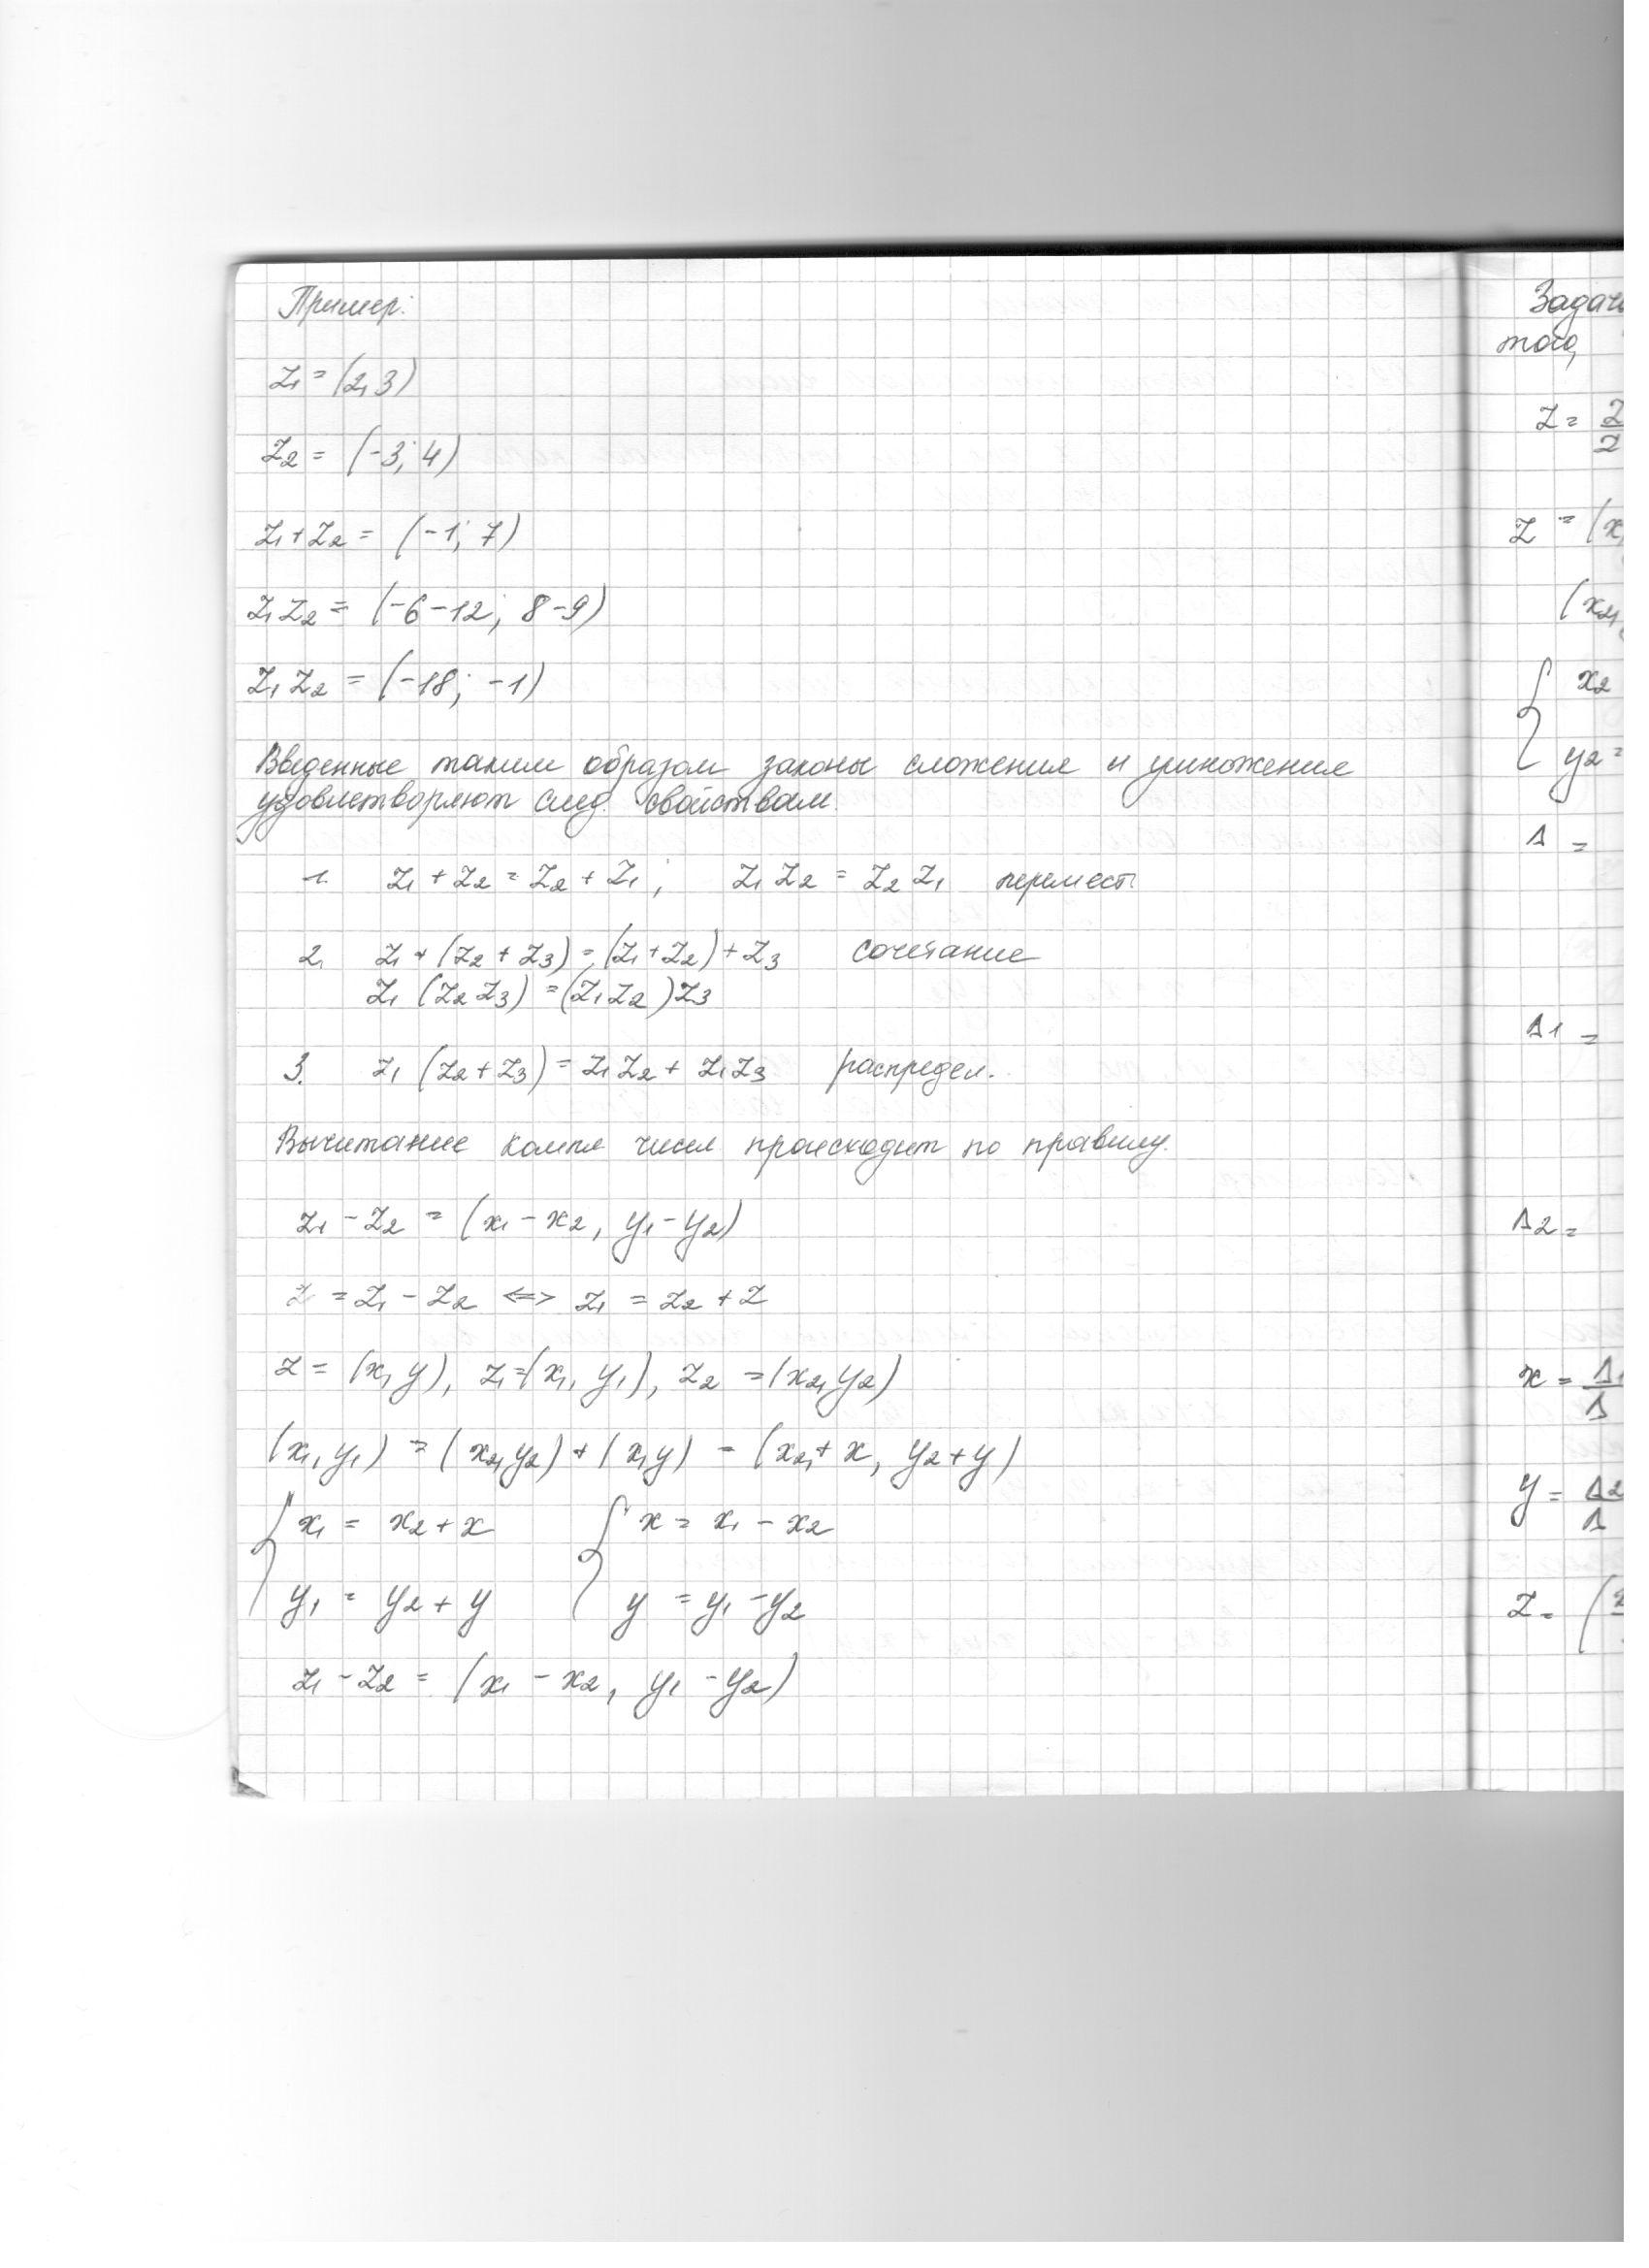 Пример:
z₁ = (2, 3)
z₂ = (-3; 4)
z₁ + z₂ = (-1; 7)
z₁ z₂ = (-6 - 12; 8 - 9)
z₁ z₂ = (-18; -1)
Введенные таким образом законы сложения и умножения
удовлетворяют след. свойствам.
1. z₁ + z₂ = z₂ + z₁ ; z₁ z₂ = z₂ z₁ перемест.
2. z₁ + (z₂ + z₃) = (z₁ + z₂) + z₃ сочетание
z₁ (z₂ z₃) = (z₁ z₂) z₃
3. z₁ (z₂ + z₃) = z₁ z₂ + z₁ z₃ распредел.
Вычитание компл чисел происходит по правилу.
z₁ - z₂ = (x₁ - x₂, y₁ - y₂)
z = z₁ - z₂ <=> z₁ = z₂ + z
z = (x, y), z₁ = (x₁, y₁), z₂ = (x₂, y₂)
(x₁, y₁) = (x₂, y₂) + (x, y) = (x₂ + x, y₂ + y)
{ x₁ = x₂ + x { x = x₁ - x₂
y₁ = y₂ + y y = y₁ - y₂
z₁ - z₂ = (x₁ - x₂, y₁ - y₂)
того,
z =
z = (x,
(x₂,
{ x₂
y₂ =
Δ =
Δ1 =
Δ2 =
x = Δ₁/Δ
y = Δ2/Δ
z = (